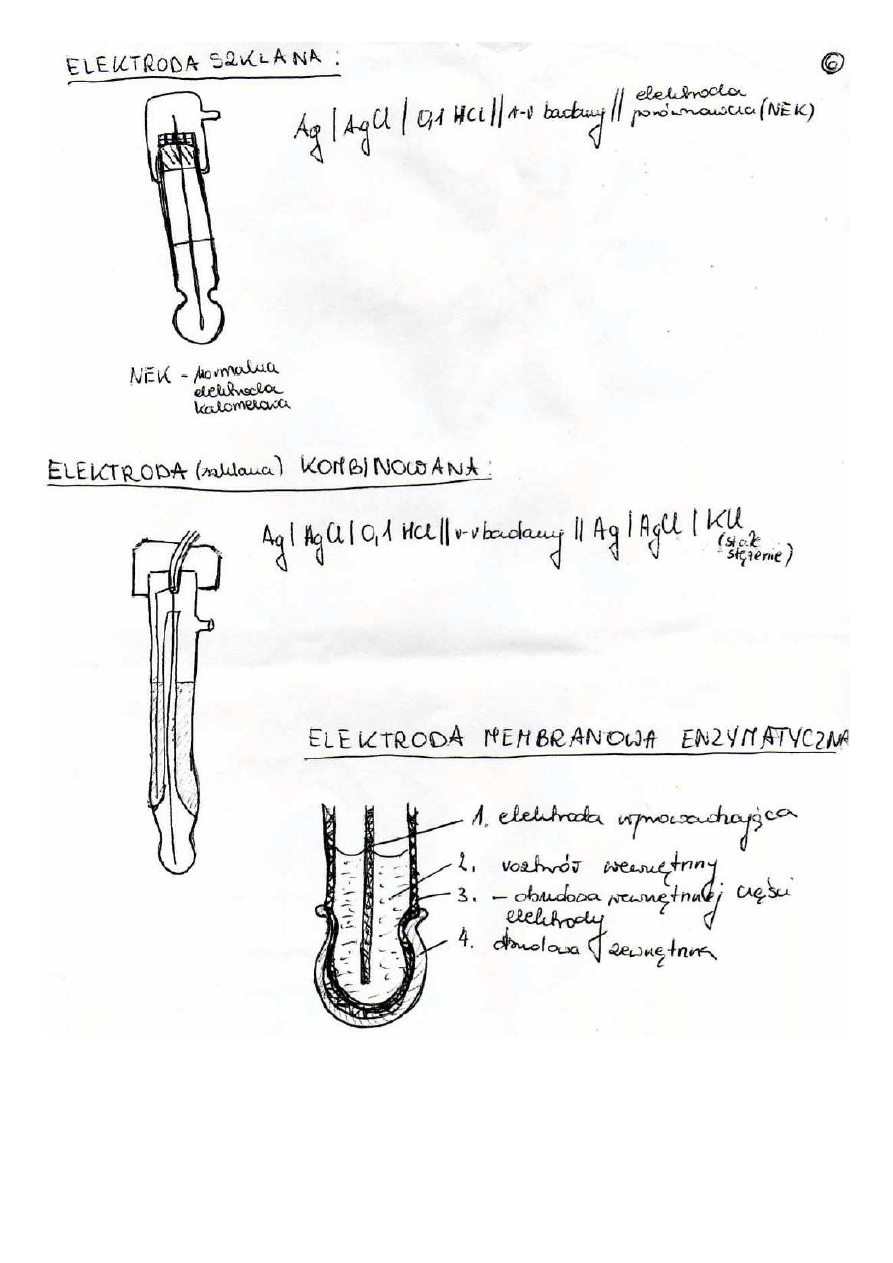 ELEKTRODA SZKLANA :
6
Ag | AgCl | 0,1 HCl || r-r badany || elektroda
porównawcza (NEK)
NEK - normalna
elektroda
kalomelowa
ELEKTRODA (szklana) KOMBINOWANA :
Ag | AgCl | 0,1 HCl || r-r badany || Ag | AgCl | KCl
(stałe
stężenie)
ELEKTRODA MEMBRANOWA ENZYMATYCZNA
1. elektroda wprowadzająca
2. roztwór wewnętrzny
3. – obudowa wewnętrznej części
elektrody
4. obudowa zewnętrzna